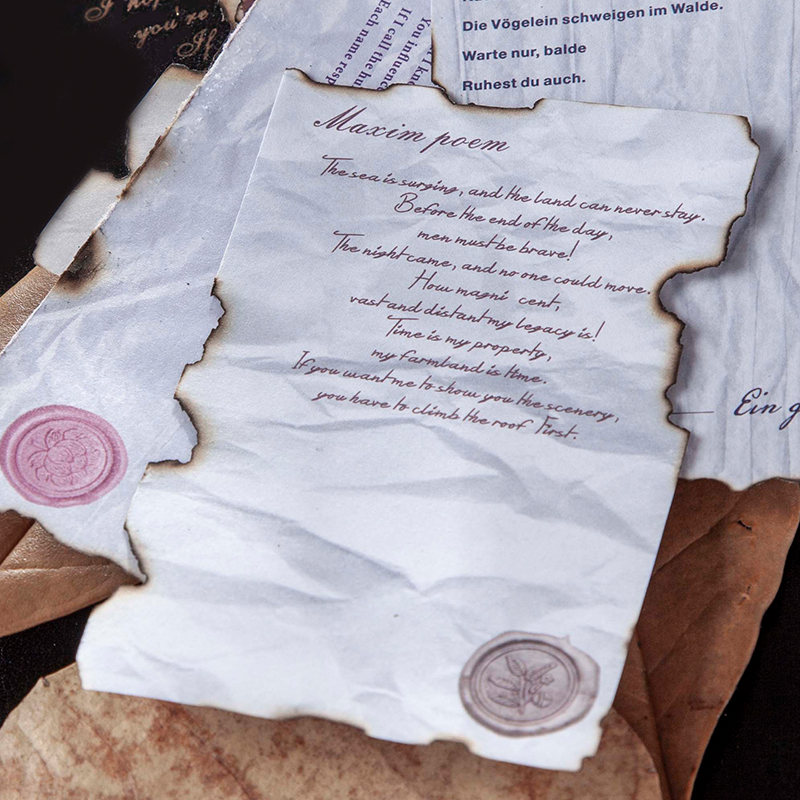 you're
If
Each name resp
If I call the hu
You influenc
Die Vögelein schweigen im Walde.
Warte nur, balde
Ruhest du auch.
Maxim poem
The sea is surging, and the land can never stay.
Before the end of the day,
men must be brave!
The night came, and no one could move.
How magni cent,
vast and distant my legacy is!
Time is my property,
my farmland is time.
If you want me to show you the scenery,
you have to climb the roof first.
Ein g